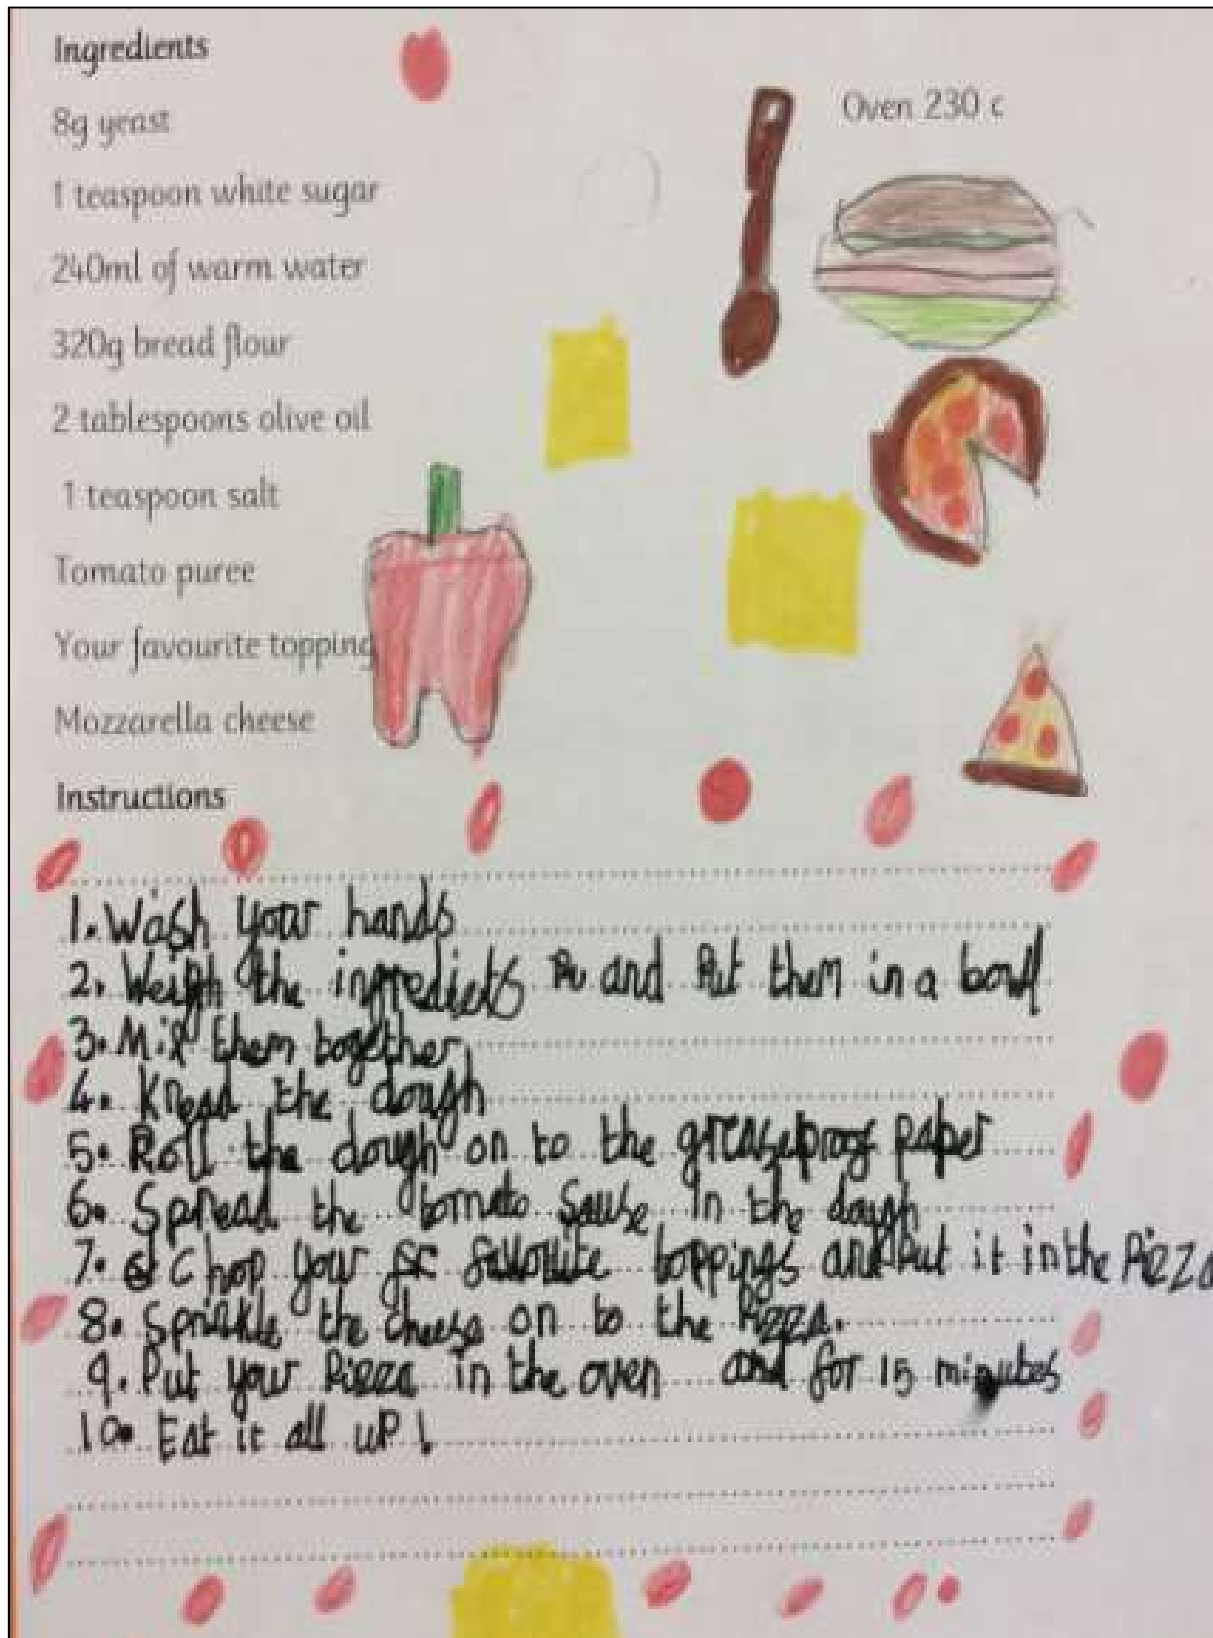 Ingredients
Oven 230 c
8g yeast
1 teaspoon white sugar
240ml of warm water
320g bread flour
2 tablespoons olive oil
1 teaspoon salt
Tomato puree
Your favourite topping
Mozzarella cheese
Instructions
1. Wash your hands
2. Weigh the ingredients and Put them in a bowl
3. Mix them together
4. Knead the dough
5. Roll the dough on to the greaseproof paper
6. Spread the tomato in the dough
7. Chop your toppings and Put it in the Pizza
8. Sprinkle the cheese on to the Pizza.
9. Put your Pizza in the oven and for 15 minutes
10. Eat it all uP!